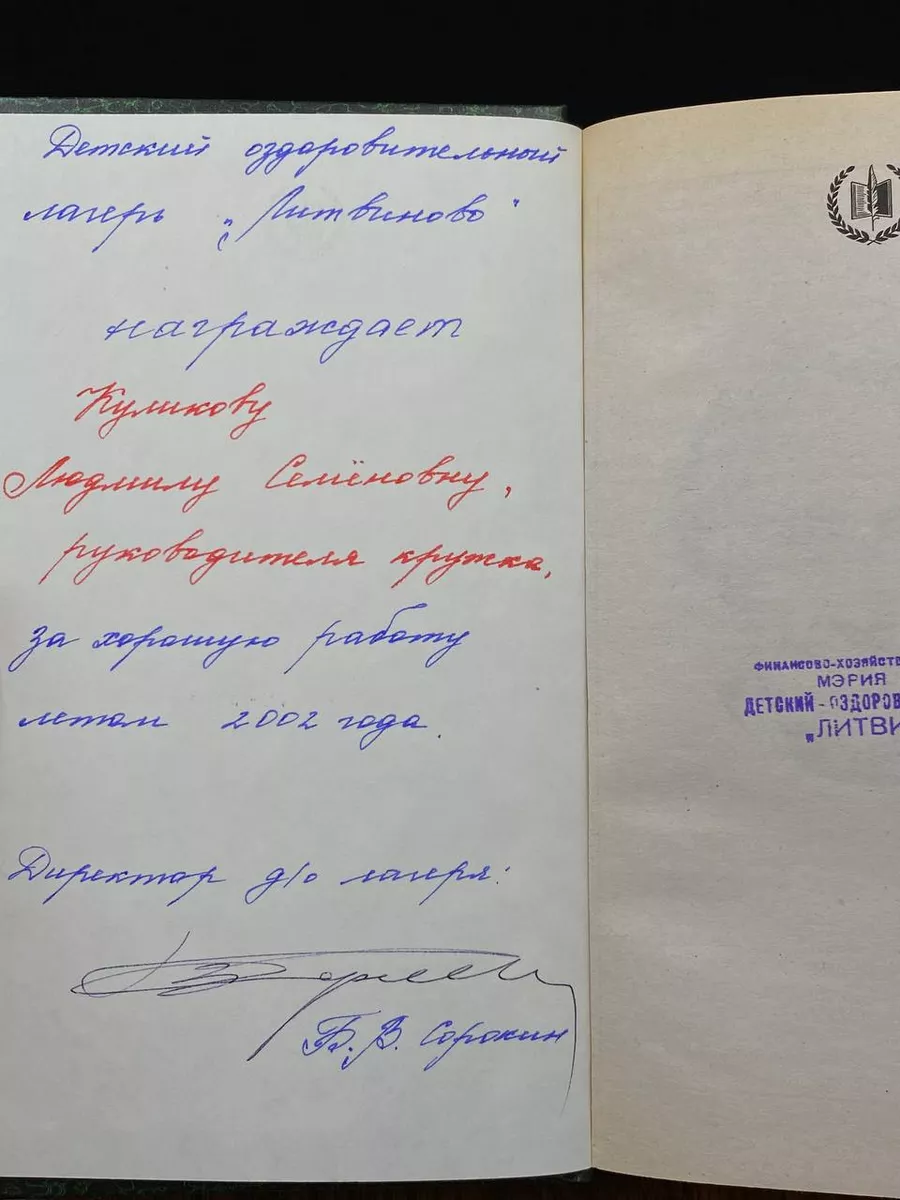 Детский оздоровительный
лагерь „Литвиново"
награждает
Куликову
Людмилу Семёновну,
руководителя кружка,
за хорошую работу
летом 2002 года.
Директор д/о лагеря:
Б. В. Сорокин
ФИНАНСОВО-ХОЗЯЙСТВ
МЭРИЯ
ДЕТСКИЙ-ОЗДОРОВ
„ЛИТВИ